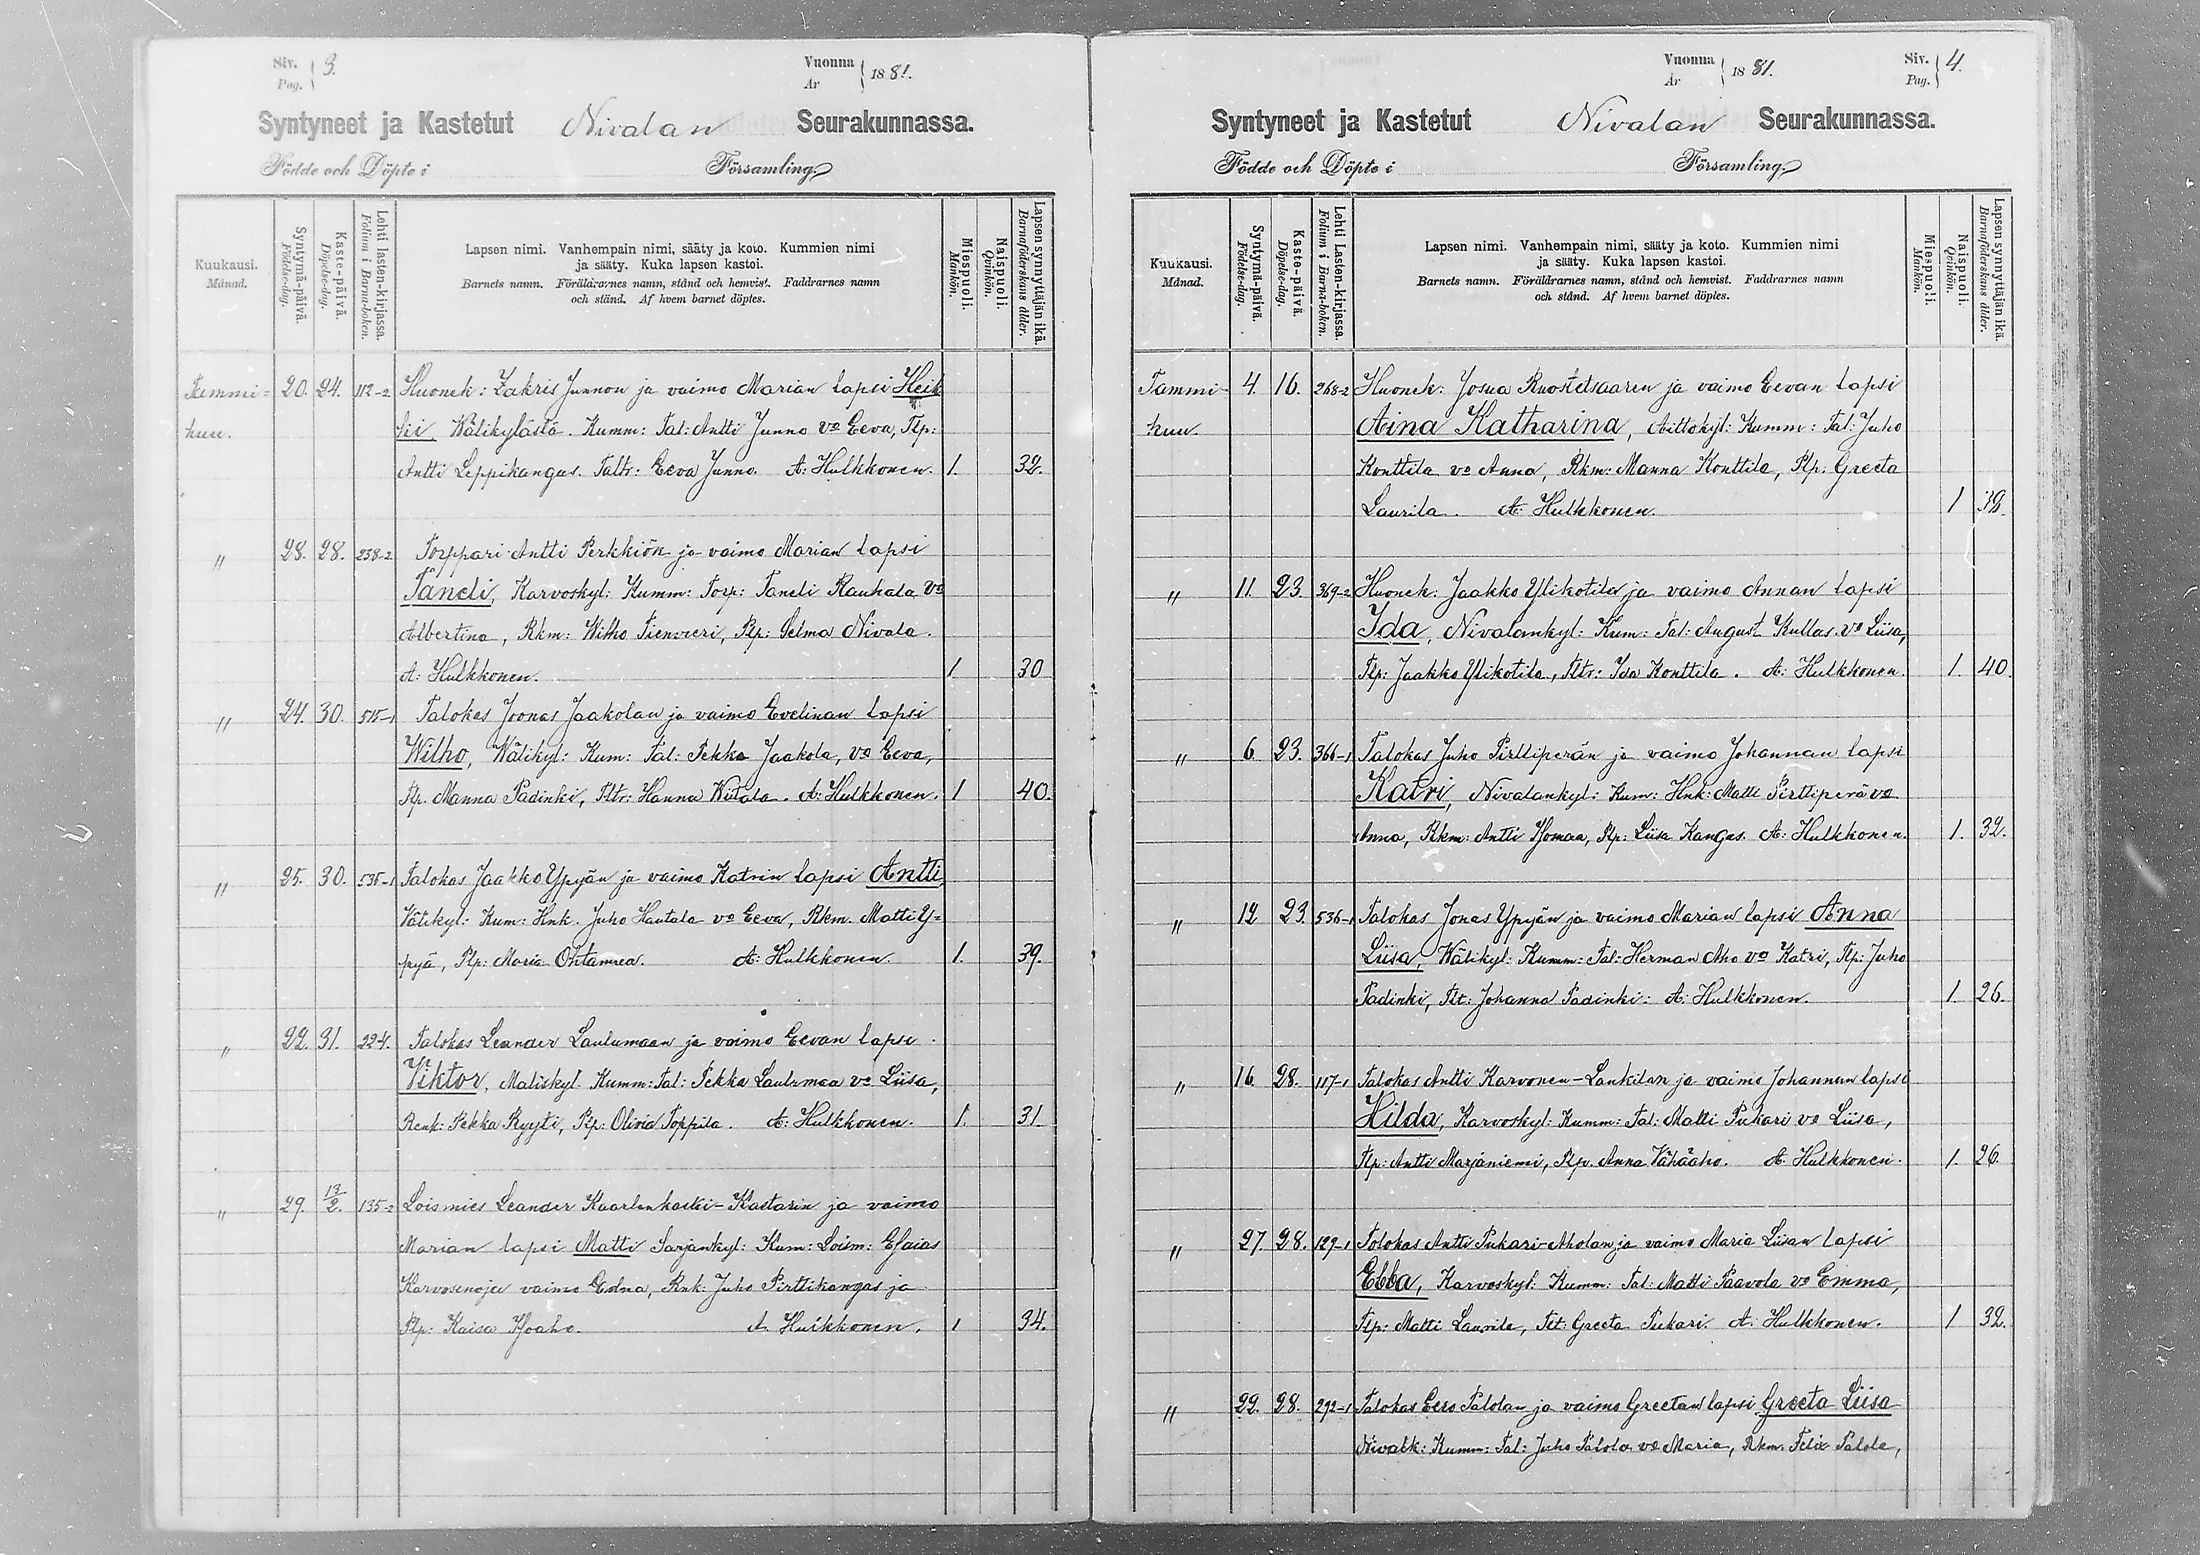 Siv. Pag. 3.
Vuonna År 1881.
Syntyneet ja Kastetut Nivalan Seurakunnassa.
Födde och Döpte i Församling.
Kuukausi. Månad.
Syntymä-päivä. Födelse-dag.
Kaste-päivä. Döpelse-dag.
Lehti lasten-kirjassa. Folium i Barna-boken.
Lapsen nimi. Vanhempain nimi, sääty ja koto. Kummien nimi
ja sääty. Kuka lapsen kastoi.
Barnets namn. Föräldrarnes namn, stånd och hemvist. Faddrarnes namn
och stånd. Af hvem barnet döptes.
Miespuoli. Mankön.
Naispuoli. Qvinkön.
Lapsen synnyttäjän ikä. Barnaföderskans ålder.
Tammi- 20. 24. 112-2 Huonek: Zakris Junnon ja vaimo Marian lapsi Heik
kuu. ki, Wälikylästä. Kumm: Tal: Antti Junno vo Eeva, Plp:
Antti Leppikangas. Taltr: Eeva Junno. A: Hulkkonen. 1. 32.
" 28. 28. 238-2 Torppari Antti Perkkiön ja vaimo Marian lapsi
Taneli, Karvoskyl: Kumm: Torp: Taneli Rauhala vo
Albertina, Rkm: Wilho Tienvieri, Plp: Selma Nivala.
A: Hulkkonen. 1 30
" 24. 30. 515-1 Talokas Joonas Jaakolan ja vaimo Evelinan lapsi
Wilho, Wälikyl: Kum: Tal: Pekka Jaakola, vo Eeva,
Plp. Manna Padinki, Tltr: Hanna Witala. A: Hulkkonen. 1 40.
" 25. 30. 535-1 Talokas Jaakko Ypyän ja vaimo Katrin lapsi Antti,
Välikyl: Kum: Hnk. Juho Hautala vo Eeva, Rkm. Matti Y-
pyä, Plp: Maria Ohtamaa. A: Hulkkonen. 1. 39.
" 22. 31. 224. Talokas Leander Laulumaan ja vaimo Eevan lapsi
Viktor, Maliskyl. Kumm: Tal: Pekka Laulumaa vo Liisa,
Renk: Pekka Ryyti, Plp: Olivia Toppila. A: Hulkkonen. 1. 31
" 29. 13/2. 135-2 Loismies Leander Kaarlenkoski-Kastarin ja vaimo
Marian lapsi Matti Sarjankyl: Kum: Loism: Esaias
Karvosenoja vaimo Edna, Rnk: Juho Pirttikangas ja
Plp: Kaisa Hoaho. A. Hulkkonen. 1 34.
Vuonna År 1881.
Siv. Pag. 4.
Syntyneet ja Kastetut Nivalan Seurakunnassa.
Födde och Döpte i Församling.
Kuukausi. Månad.
Syntymä-päivä. Födelse-dag.
Kaste-päivä. Döpelse-dag.
Lehti Lasten-kirjassa. Folium i Barna-boken.
Lapsen nimi. Vanhempain nimi, sääty ja koto. Kummien nimi
ja sääty. Kuka lapsen kastoi.
Barnets namn. Föräldrarnes namn, stånd och hemvist. Faddrarnes namn
och stånd. Af hvem barnet döptes.
Miespuoli. Mankön.
Naispuoli. Qvinkön.
Lapsen synnyttäjän ikä. Barnaföderskans ålder.
Tammi- 4. 16. 268-2 Huonek: Josua Ruostetsaaren ja vaimo Eevan lapsi
kuu. Aina Katharina, Aittokyl: Kumm: Tal: Juho
Konttila vo Anna, Rkm: Manna Konttila, Plp: Greeta
Laurila. A: Hulkkonen. 1 32.
" 11. 23. 369-2 Huonek: Jaakko Ylikotila ja vaimo Annan lapsi
Ida, Nivalankyl: Kum: Tal: August Kullas. vo Liisa,
Plp: Jaakko Ylikotila, Tltr: Ida Konttila. A: Hulkkonen. 1. 40.
" 6. 23. 366-1 Talokas Juho Pirttiperän ja vaimo Johannan lapsi
Katri, Nivalankyl: Kum: Hnk: Matti Pirttiperä vo
Anna, Rkm: Antti Homaa, Plp: Liisa Kangas. A: Hulkkonen. 1. 32.
" 12. 23. 536-1 Talokas Jonas Ypyän ja vaimo Marian lapsi Anna
Liisa, Wälikyl: Kumm: Tal: Herman Aho vo Katri, Plp: Juho
Padinki, Tlt: Johanna Padinki: A: Hulkkonen. 1 26.
" 16. 28. 117-1 Talokas Antti Karvonen-Lankilan ja vaimo Johannan lapsi
Hilda, Karvoskyl: Kumm: Tal: Matti Pukari vo Liisa,
Plp: Antti Marjaniemi, Plp. Anna Vähäaho. A: Hulkkonen. 1. 26.
" 27. 28. 129-1 Talokas Antti Pukari-Aholan ja vaimo Maria Liisan lapsi
Ebba, Karvoskyl: Kumm: Tal: Matti Paavola vo Emma,
Plp: Matti Laurila, Tlt: Greeta Pukari. A: Hulkkonen. 1 32.
" 22. 28. 292-1 Talokas Eero Palolan ja vaimo Greetan lapsi Greeta Liisa
Nivalk: Kumm: Tal: Juho Palola vo Maria, Rkm. Felix Palola,